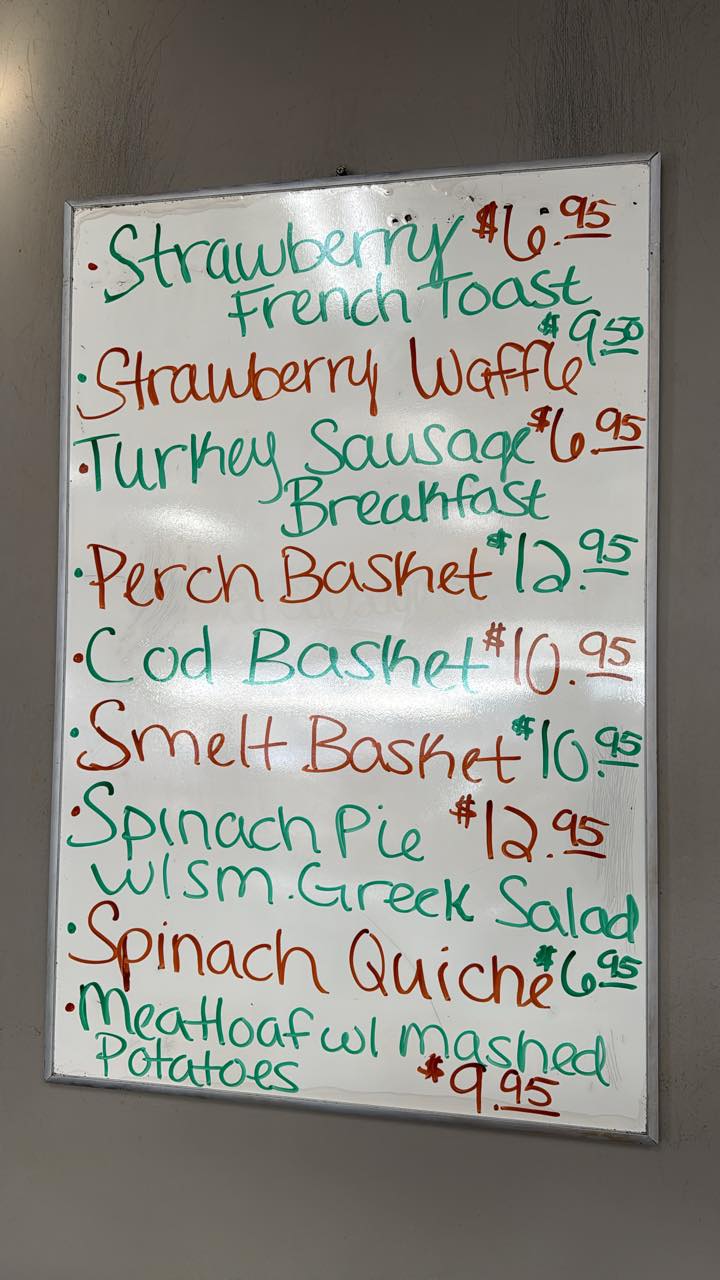 • Strawberry $6.95
French Toast
$9.50
• Strawberry Waffle
• Turkey Sausage $6.95
Breakfast
• Perch Basket $12.95
• Cod Basket $10.95
• Smelt Basket $10.95
• Spinach Pie $12.95
w/sm. Greek Salad
• Spinach Quiche $6.95
• Meatloaf w/ mashed
Potatoes $9.95